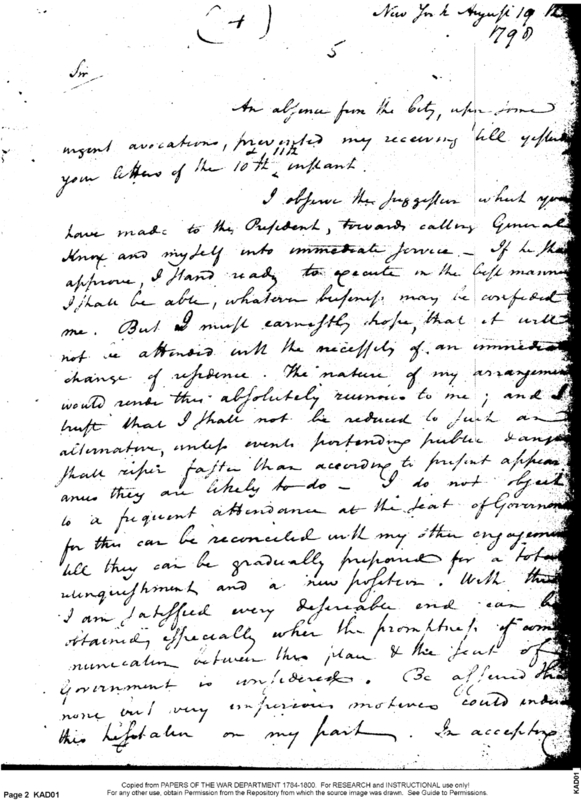 New York August 19th
1798
(4)
5
Sir
An absence from the City, upon some
urgent avocations, prevented my receiving till yester
your letters of the 10th & 11th instant.
I observe the suggestion which you
have made to the President, towards calling General
Knox and myself into immediate service – If he sha
approve, I stand ready to execute in the best manner
I shall be able, whatever business may be confided
me. But I must earnestly hope, that it will
not be attended with the necessity of an immediate
change of residence. The nature of my arrangemen
would render this absolutely ruinous to me; and I
trust that I shall not be reduced to such an
alternative, unless events portending public dange
shall ripen faster than according to present appear
ances they are likely to do – I do not object
to a frequent attendance at the seat of Governm
for this can be reconciled with my other engagemen
till they can be gradually prepared for a total
relinquishment and a new position. With this
I am satisfied every desireable end can be
obtained, especially when the promptness of com
munication between this place & the seat of
Government is considered. Be assured tha
none but very imperious motives could induce
this hesitation on my part. In accepting
Copied from PAPERS OF THE WAR DEPARTMENT 1784-1800. For RESEARCH and INSTRUCTIONAL use only!
For any other use, obtain Permission from the Repository from which the source image was drawn. See Guide to Permissions.
Page 2 KAD01
KAD01